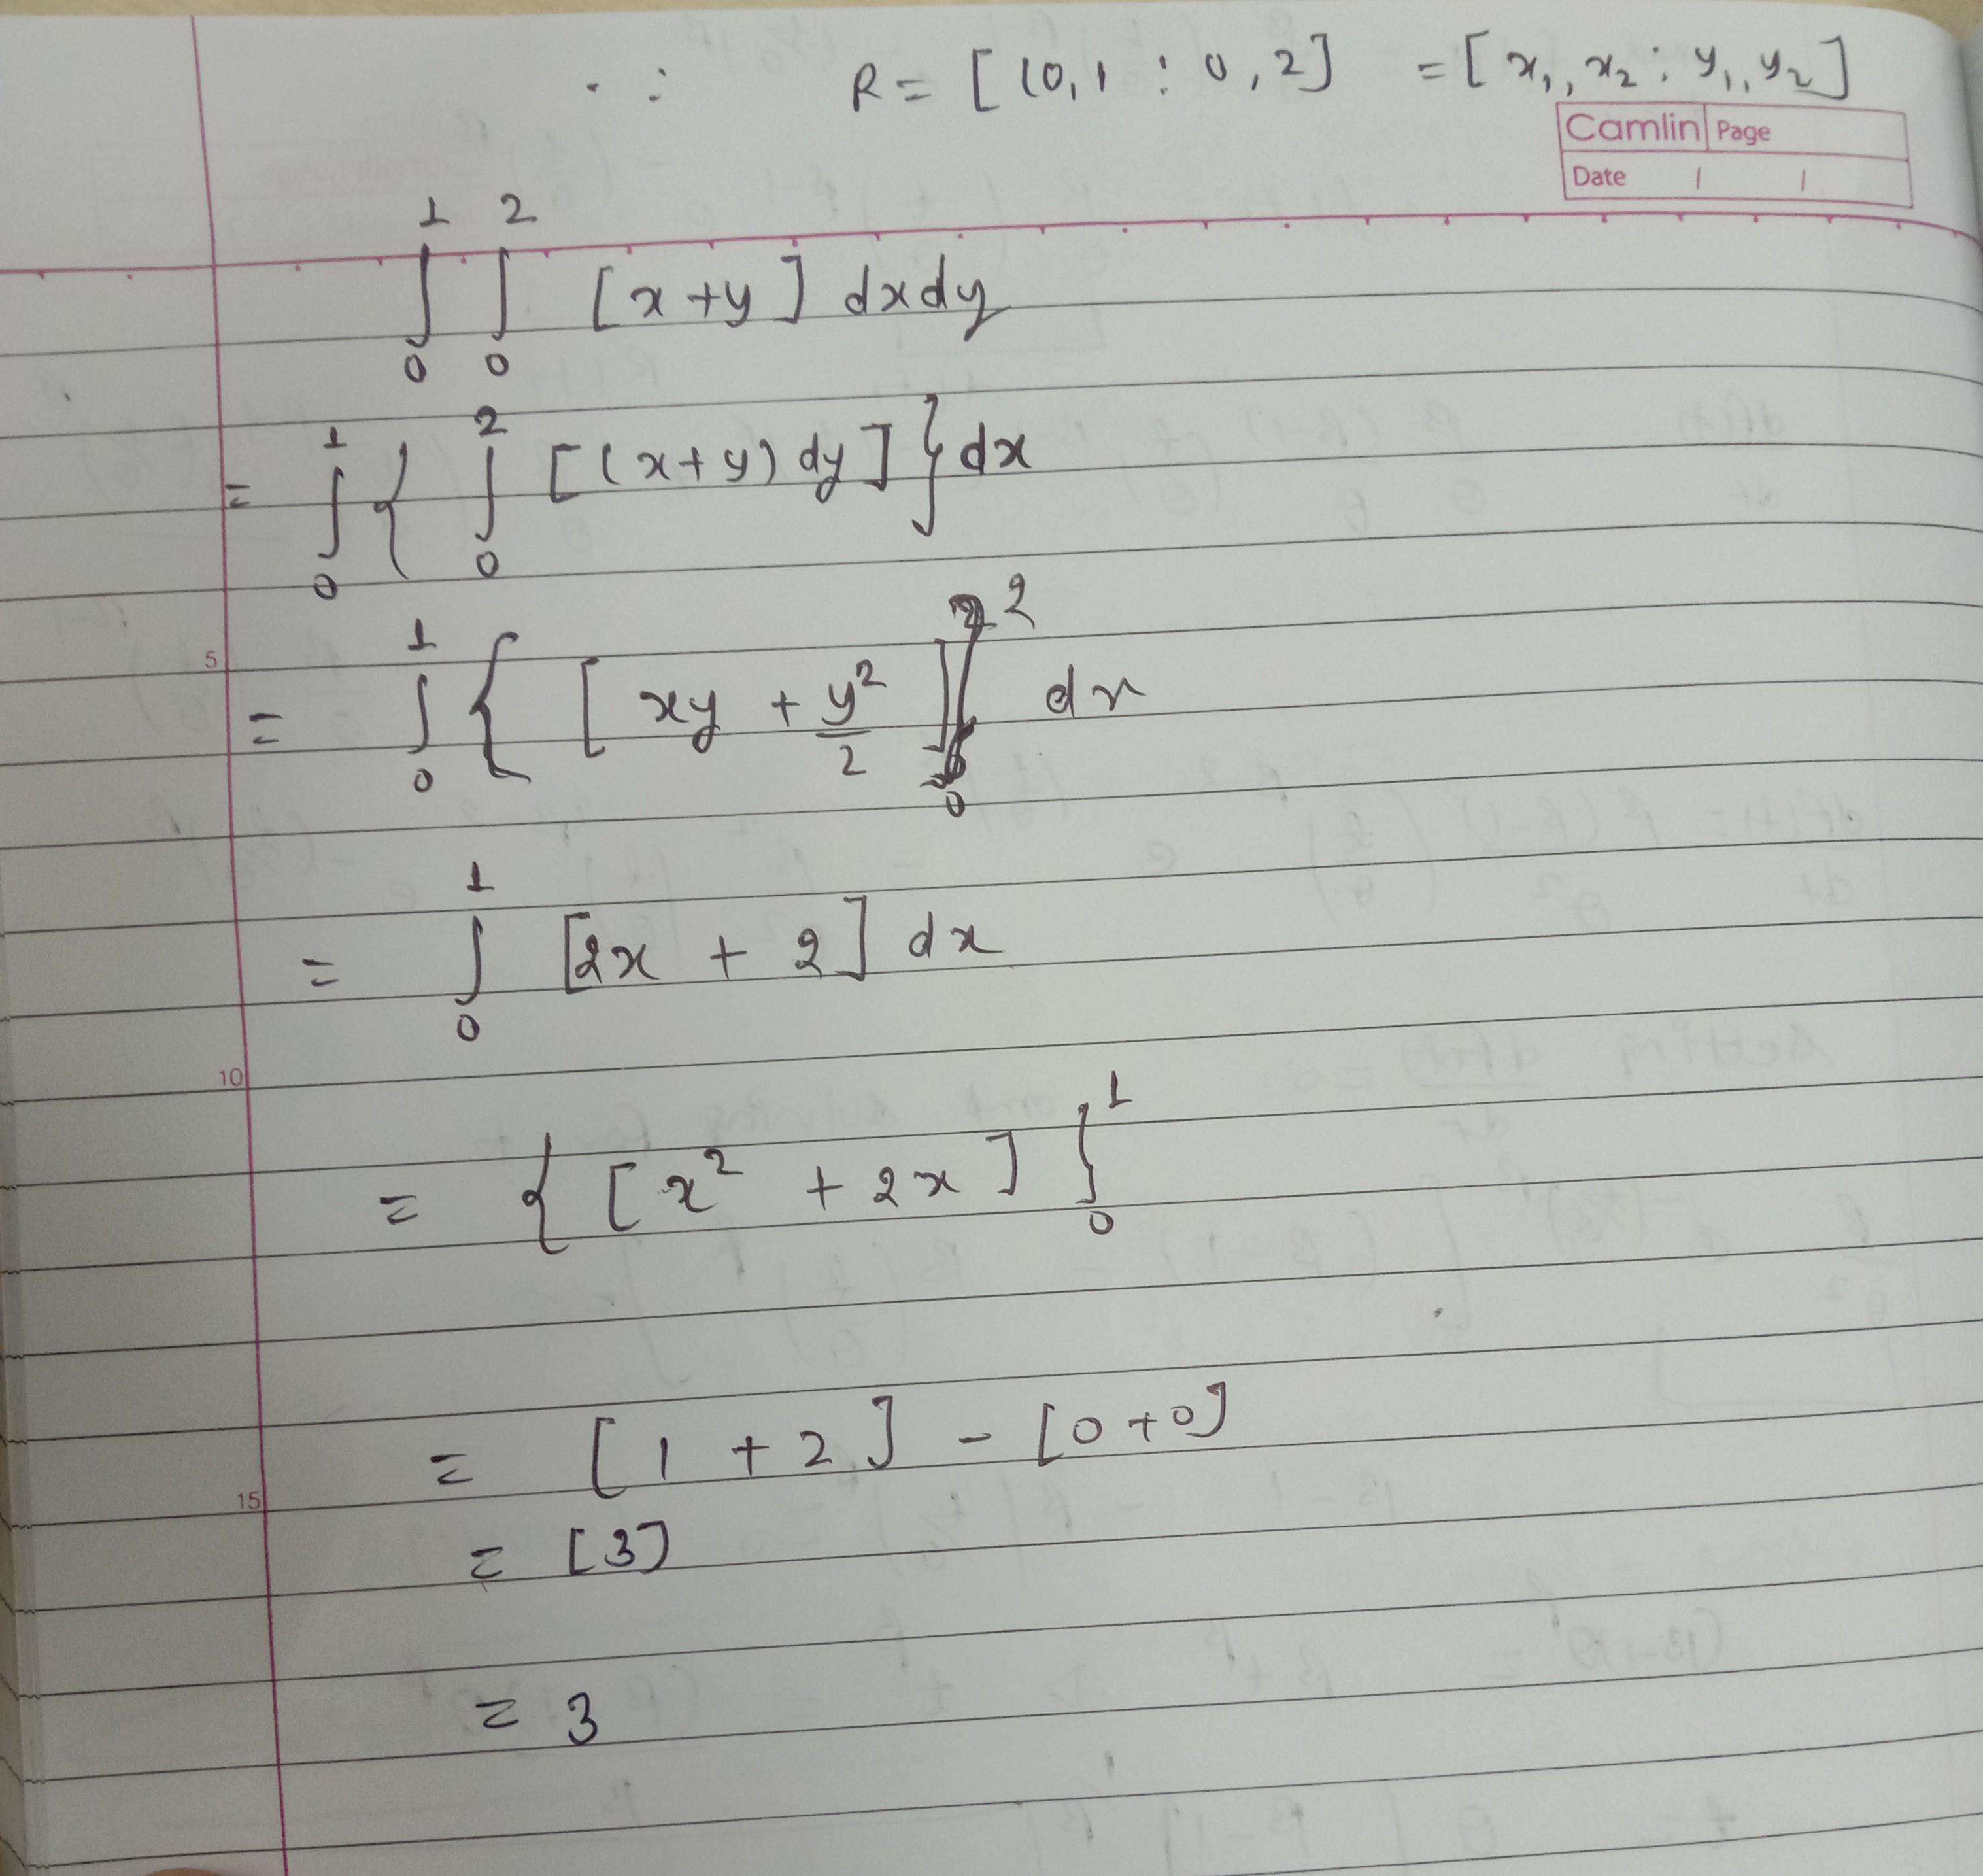 ∴ R = [(0,1 : 0,2] = [x₁, x₂ : y₁, y₂]
Camlin Page
Date / /
∫₀¹ ∫₀² [x+y] dxdy
= ∫₀¹ { ∫₀² [(x+y) dy] } dx
5
= ∫₀¹ { [xy + y²/2]₀² dx
= ∫₀¹ [2x + 2] dx
10
= { [x² + 2x] }₀¹
= [1 + 2] - [0+0]
15
= [3]
= 3